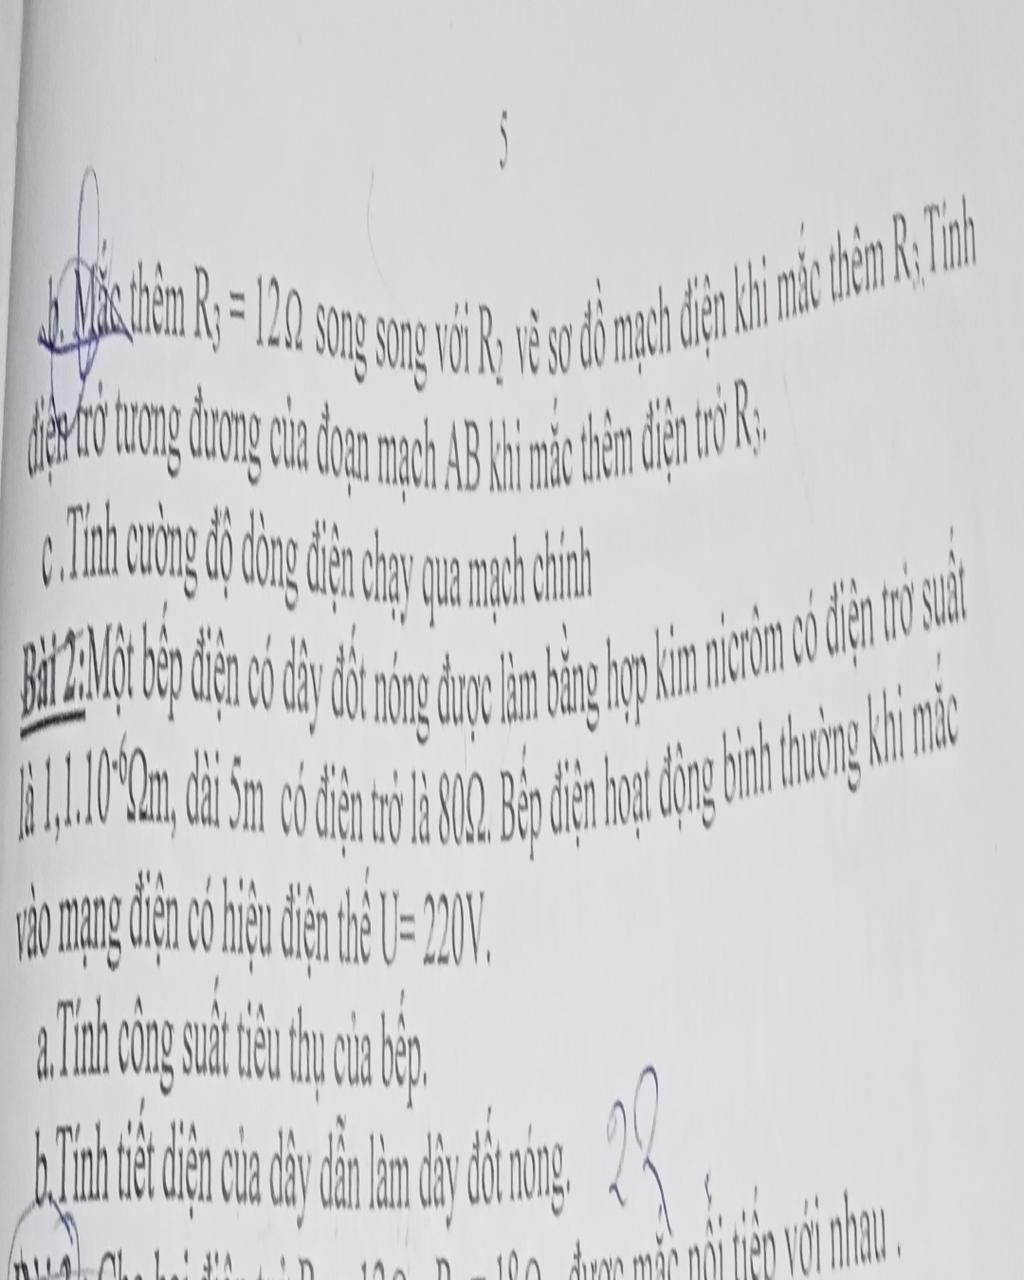 5
b. Mắc thêm R₃ = 12Ω song song với R₂ vẽ sơ đồ mạch điện khi mắc thêm R₃. Tính
điện trở tương đương của đoạn mạch AB khi mắc thêm điện trở R₃.
c .Tính cường độ dòng điện chạy qua mạch chính
Bài 2:Một bếp điện có dây đốt nóng được làm bằng hợp kim nicrôm có điện trở suất
là 1,1.10⁻⁶Ωm, dài 5m có điện trở là 80Ω. Bếp điện hoạt động bình thường khi mắc
vào mạng điện có hiệu điện thế U= 220V.
a.Tính công suất tiêu thụ của bếp.
b.Tính tiết diện của dây dẫn làm dây đốt nóng.
được mắc nối tiếp với nhau .